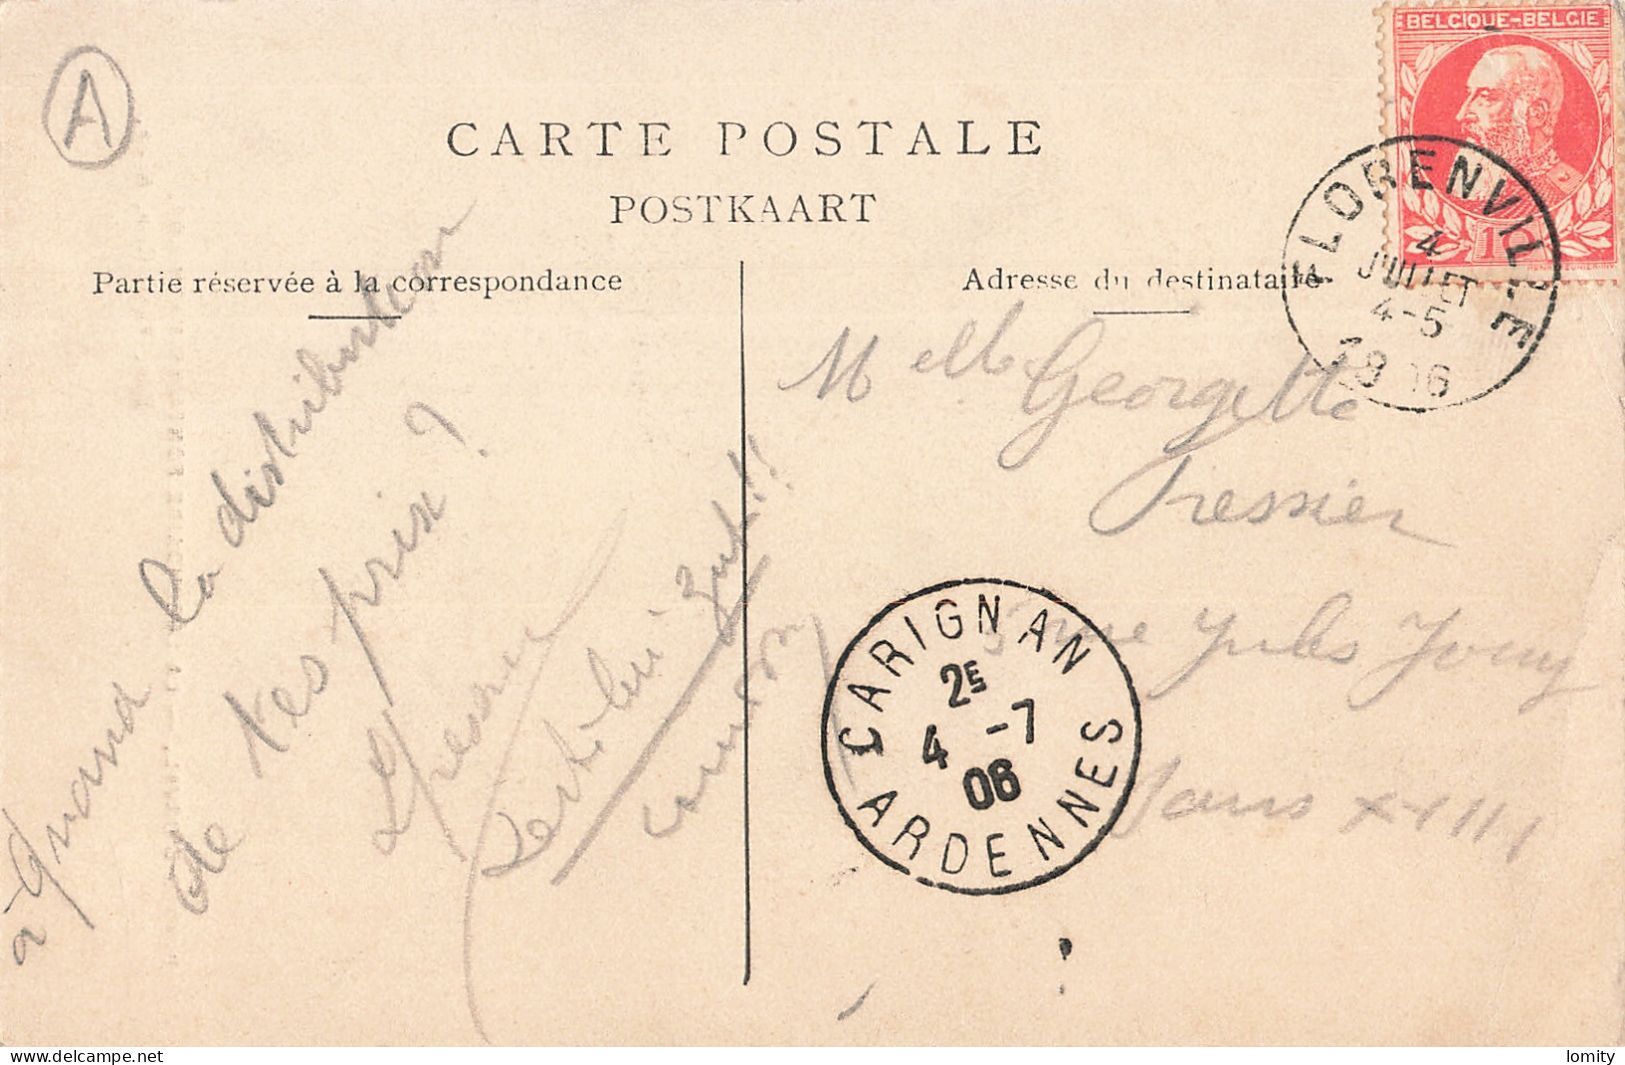 A
BELGIQUE-BELGIE
10
FLORENVILLE
4
JUILLET
4-5
1906
CARTE POSTALE
POSTKAART
Partie réservée à la correspondance
Adresse du destinataire
à quand la distribution
de tes prix ?
Melle Georgette
Tressier
rue Jules Jouy
Paris XVIII
CARIGNAN
2E
4 -7
06
ARDENNES
delcampe.net
lomity